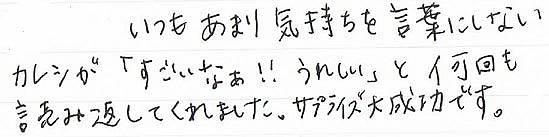 いつもあまり気持ちを言葉にしない
カレシが「すごいなぁ!! うれしい」と何回も
読み返してくれました。サプライズ大成功です。